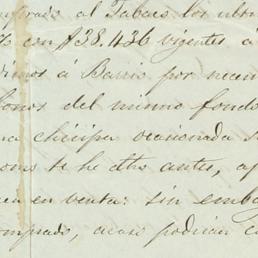 comprado al Tabaco los ubon
con $38.436 vigentes á
dimos á Barrio por necesi
fonos del mismo fondo
na chispa ocasionada
como te he dho antes, a
en venta: sin emba
omprado, acaso podrian c